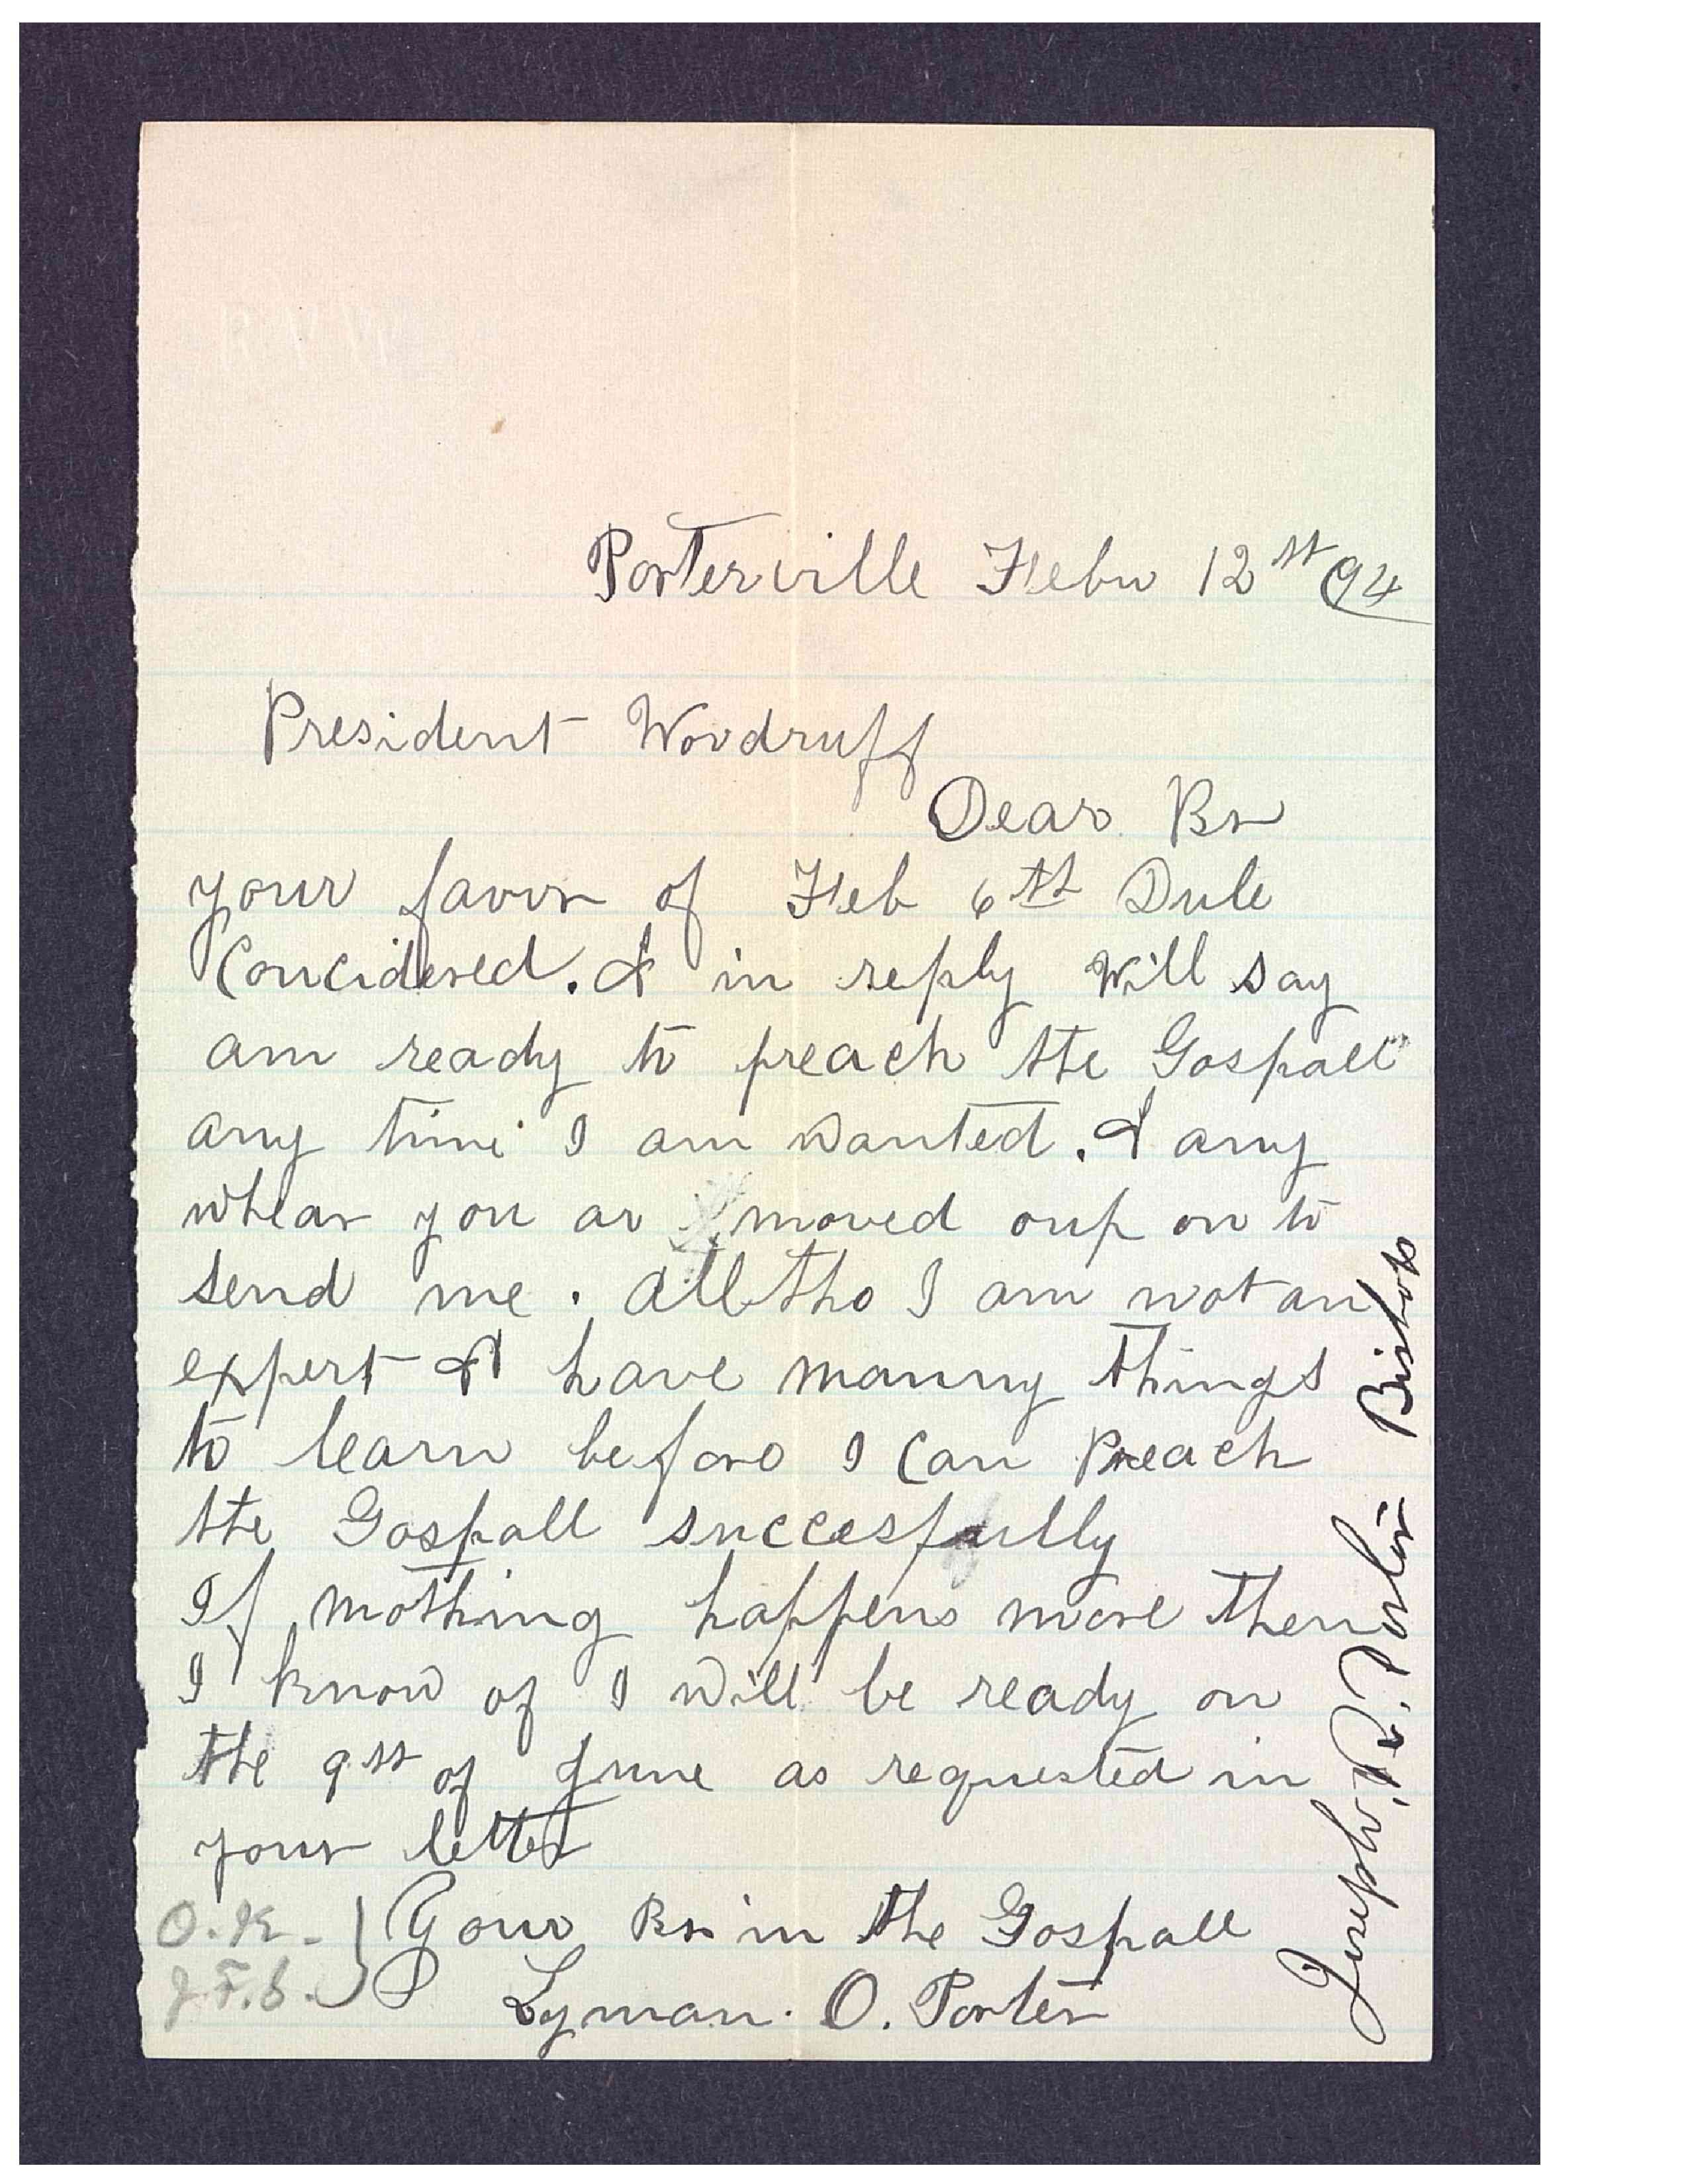 Porterville Febu 12st 94
President Woodruff
Dear Br
your favor of Feb 6th Dule
Concidered. & in reply will say
am ready to preach the Gospall
any time I am wanted. & any
whear you ar moved oup on to
send me. alltho I am not an
expert & have manny things
to learn before I can Preach
the Gospall succesfully
If nothing happens more then
I know of I will be ready on
the 9st of June as requested in
your letter
Your Br in the Gospall
Lyman. O. Porter
O.K.
J.F.S.
Joseph. R. Porter Bishop